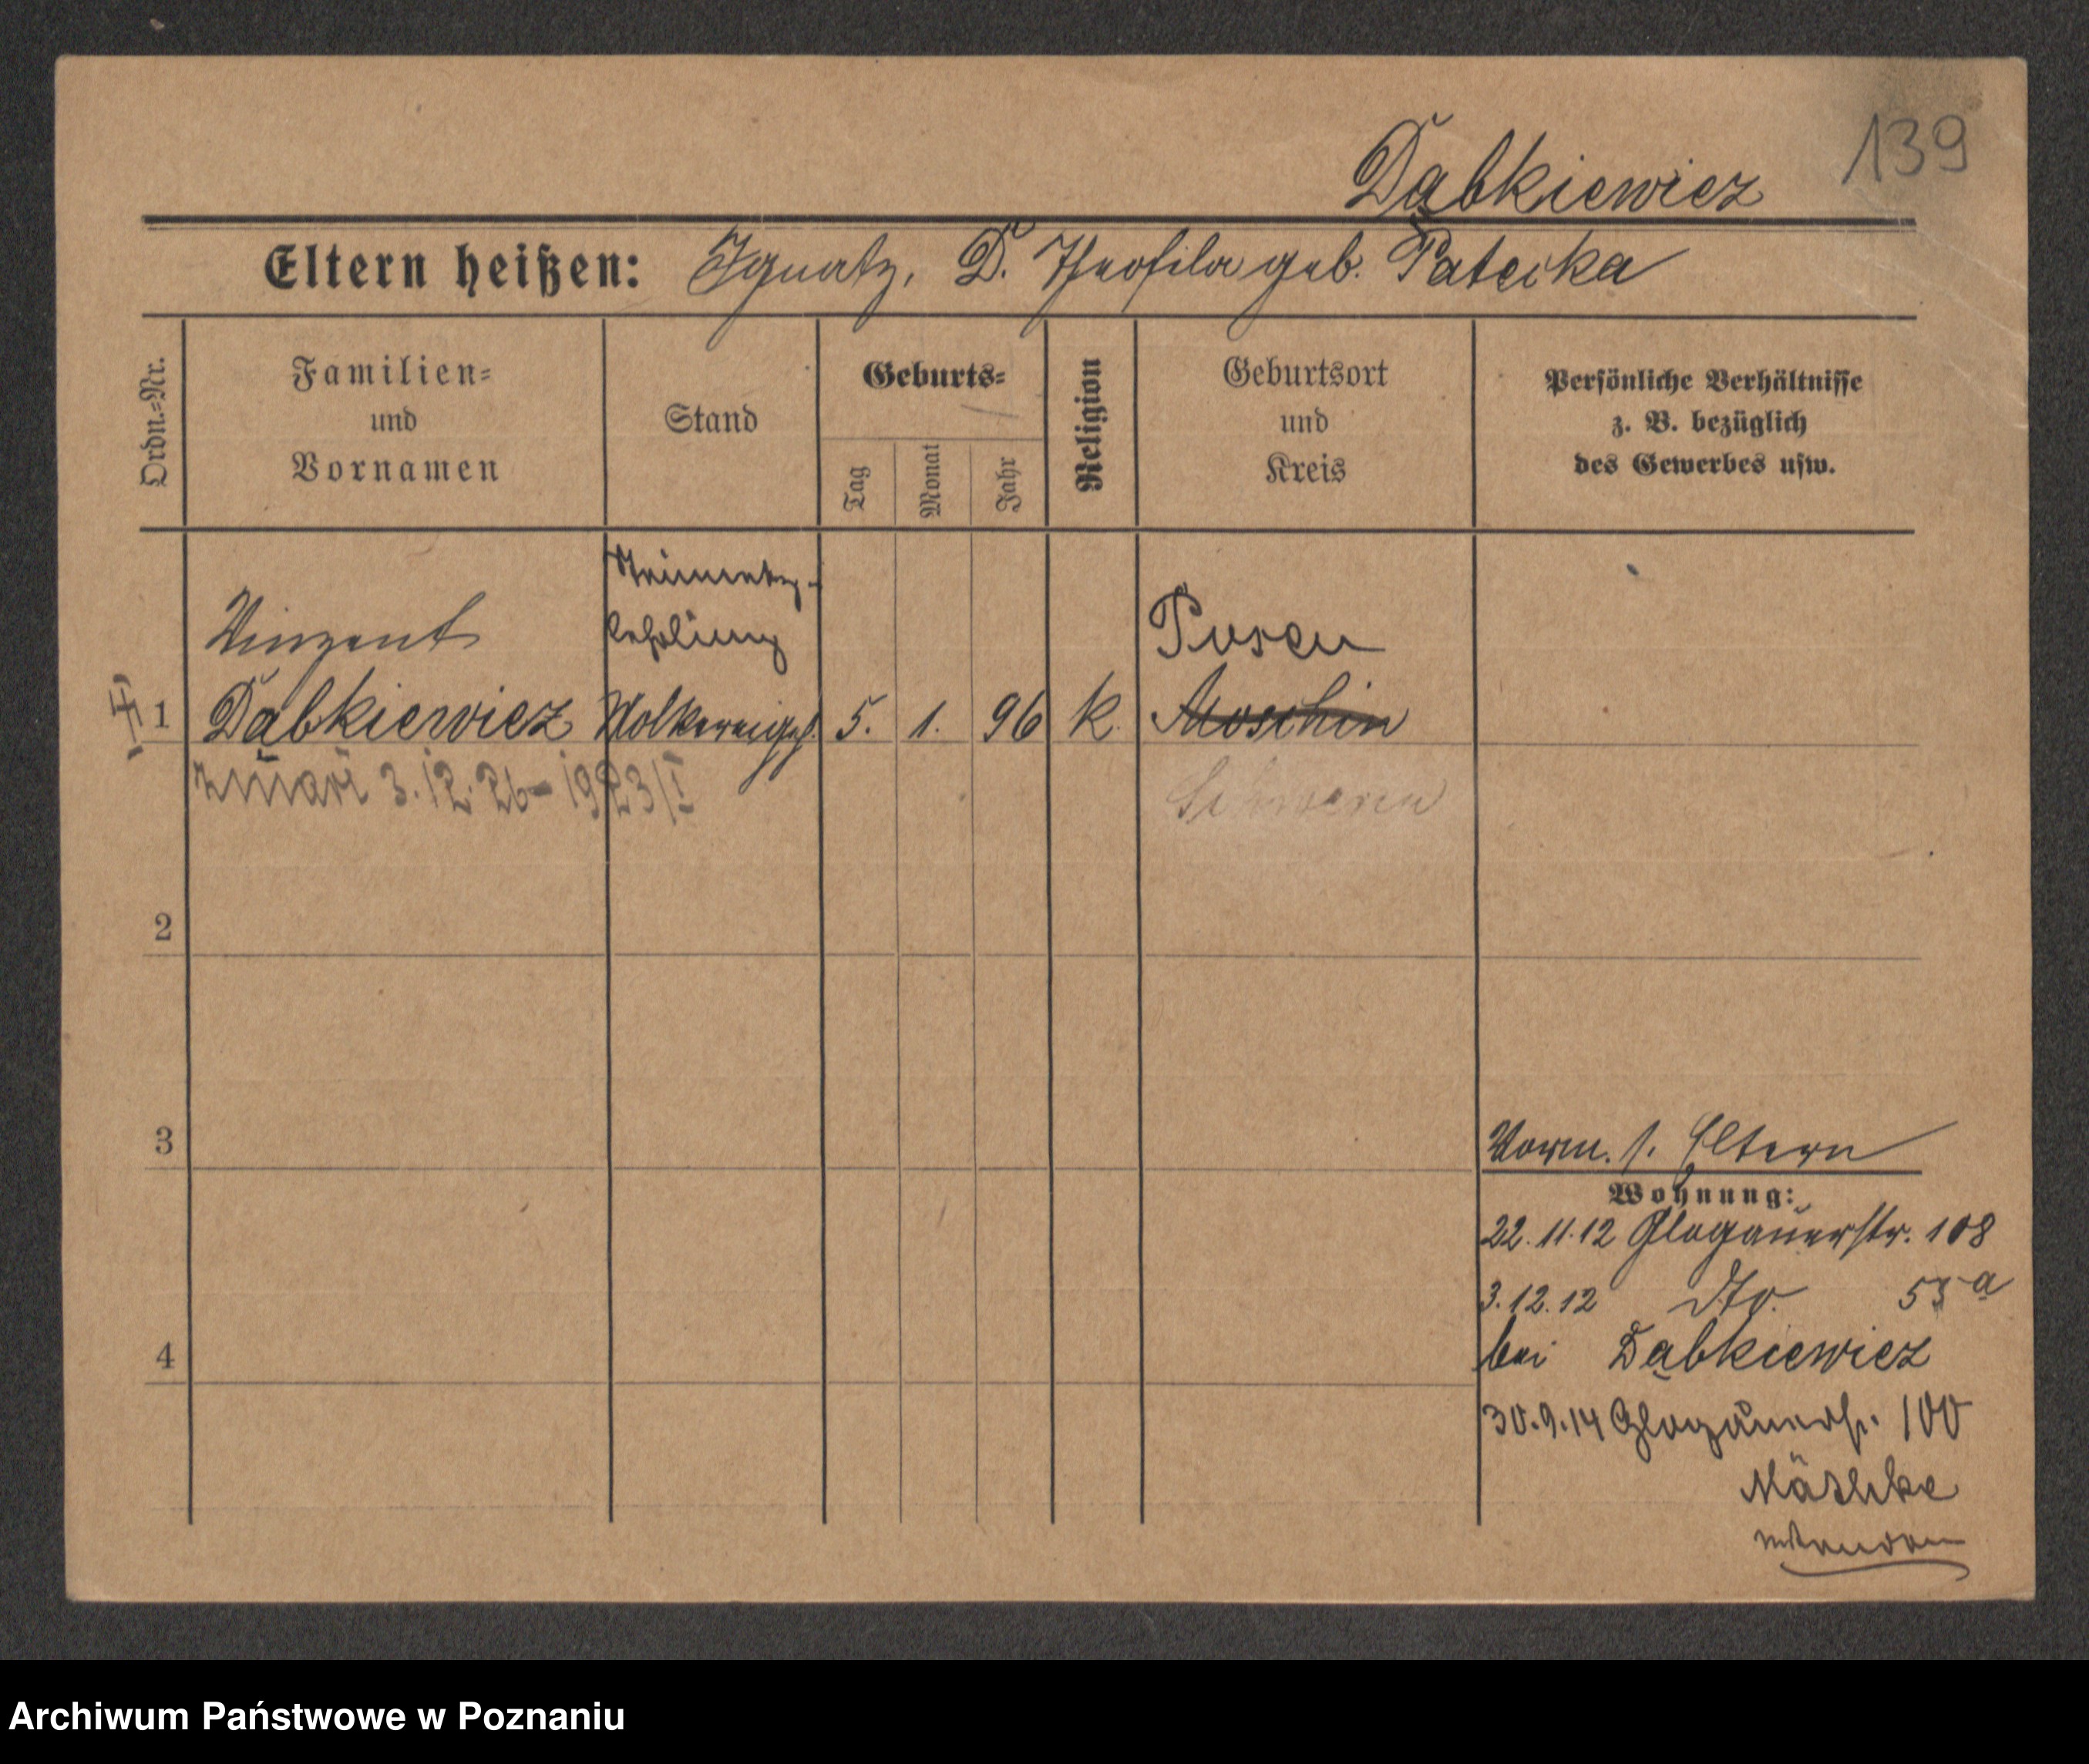 139
Dąbkiewicz
Eltern heißen: Ignatz, D. Theofila geb. Patecka
Ordn.-Nr.
Familien-
und
Vornamen
Stand
Geburts-
Tag
Monat
Jahr
Religion
Geburtsort
und
Kreis
Persönliche Verhältnisse
z. B. bezüglich
des Gewerbes usw.
Steinmetz-
Vinzent
lehrling
Posen
1 Dąbkiewicz Molkereigeh. 5. 1. 96 k. Moschin
zmarł 3.12.26 - 1923/I
Schwerin
2
3
Vorm. s. Eltern
Wohnung:
22.11.12 Glogauerstr. 108
3.12.12 Dto. 53a
4
bei Dąbkiewicz
30.9.14 Glogauerstr. 100
Archiwum Państwowe w Poznaniu